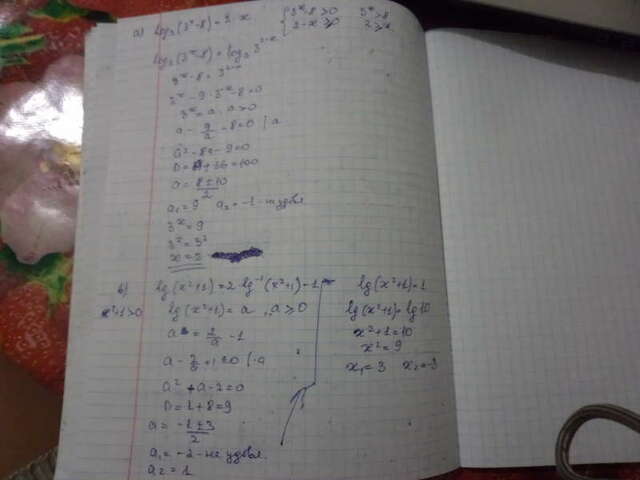 а) log₃(3ˣ-8)=2-x { 3ˣ-8>0 3ˣ>8
2-x≥0 2≥x
log₃(3ˣ-8)=log₃3²⁻ˣ
3ˣ-8=3²⁻ˣ
3ˣ-9·3⁻ˣ-8=0
3ˣ=a a>0
a-9/a-8=0 | a
a²-8a-9=0
D=64+36=100
a=8±10/2
a₁=9 a₂=-1-не удовл.
3ˣ=9
3ˣ=3²
x=2
в) lg(x²+1)=2 lg⁻¹(x²+1)-1
x²+1>0 lg(x²+1)=a, a≥0
a=2/a-1
a-2/a+1=0 |·a
a²+a-2=0
D=1+8=9
a=-1±3/2
a₁=-2-не удовл.
a₂=1
lg(x²+1)=1
lg(x²+1)=lg10
x²+1=10
x²=9
x₁=3 x₂=-3